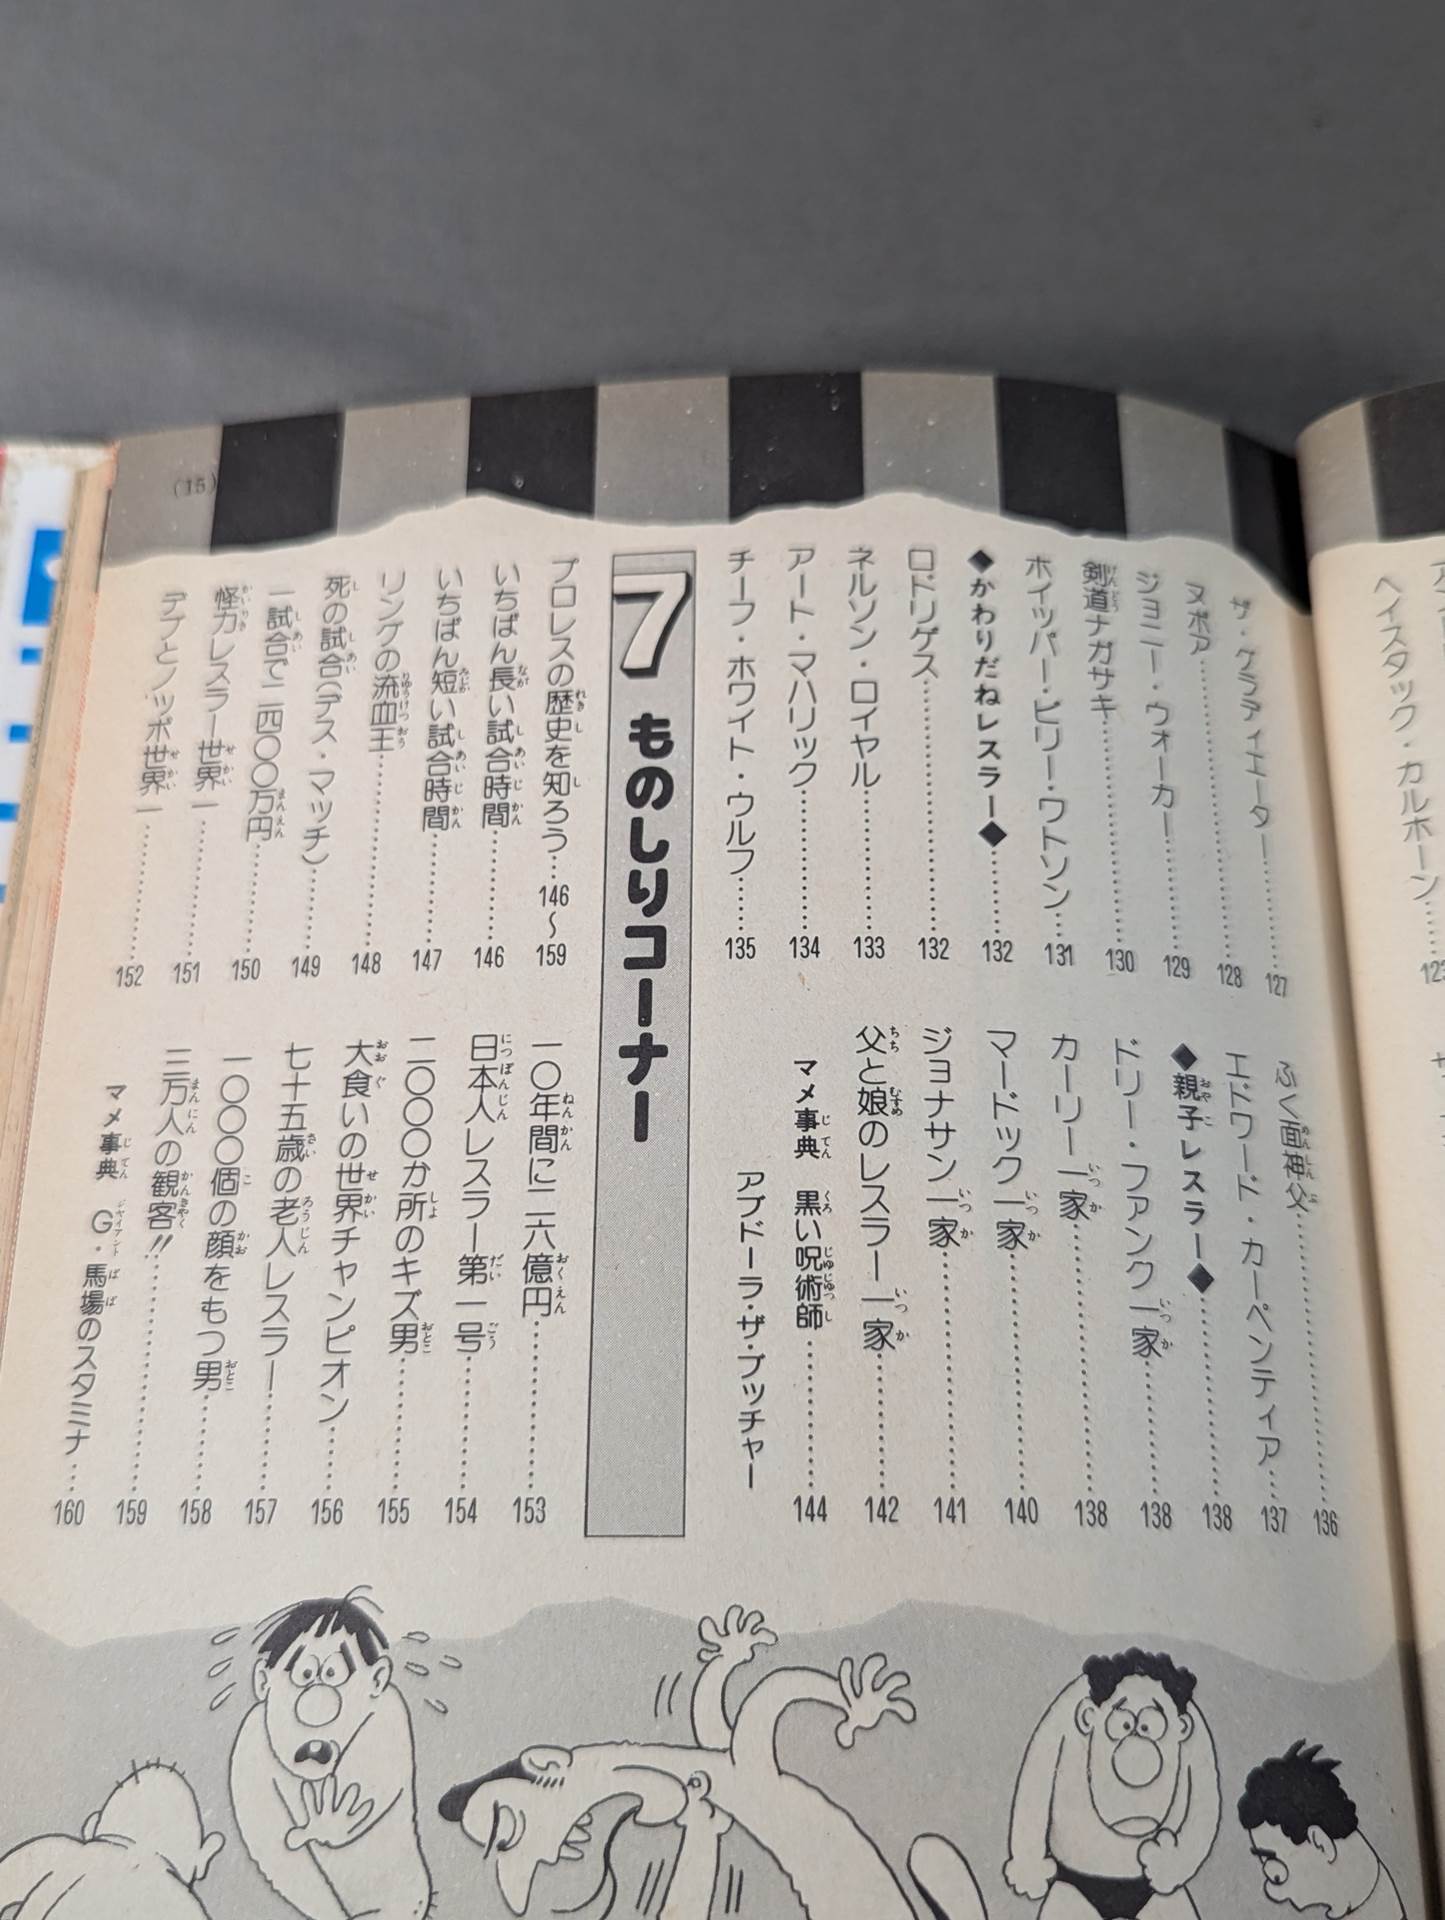 ヘイスタック・カルホーン……123
ザ・グラディエーター……127
ヌボア……128
ジョニー・ウォーカー……129
剣道ナガサキ……130
ホイッパー・ビリー・ワトソン……131
◆かわりだねレスラー◆……132
ロドリゲス……132
ネルソン・ロイヤル……133
アート・マハリック……134
チーフ・ホワイト・ウルフ……135
ふく面神父……136
エドワード・カーペンティア……137
◆親子レスラー◆……138
ドリー・ファンク一家……138
カーリー一家……138
マードック一家……140
ジョナサン一家……141
父と娘のレスラー一家……142
マメ事典 黒い呪術師……144
アブドーラ・ザ・ブッチャー
7 ものしりコーナー
プロレスの歴史を知ろう…146〜159
いちばん長い試合時間……146
いちばん短い試合時間……147
リングの流血王……148
死の試合(デス・マッチ)……149
一試合で二四〇〇万円……150
怪力レスラー世界一……151
デブとノッポ世界一……152
一〇年間に二六億円……153
日本人レスラー第一号……154
二〇〇〇か所のキズ男……155
大食いの世界チャンピオン……156
七十五歳の老人レスラー……157
一〇〇〇個の顔をもつ男……158
三万人の観客!!……159
マメ事典 G・馬場のスタミナ…160
(15)